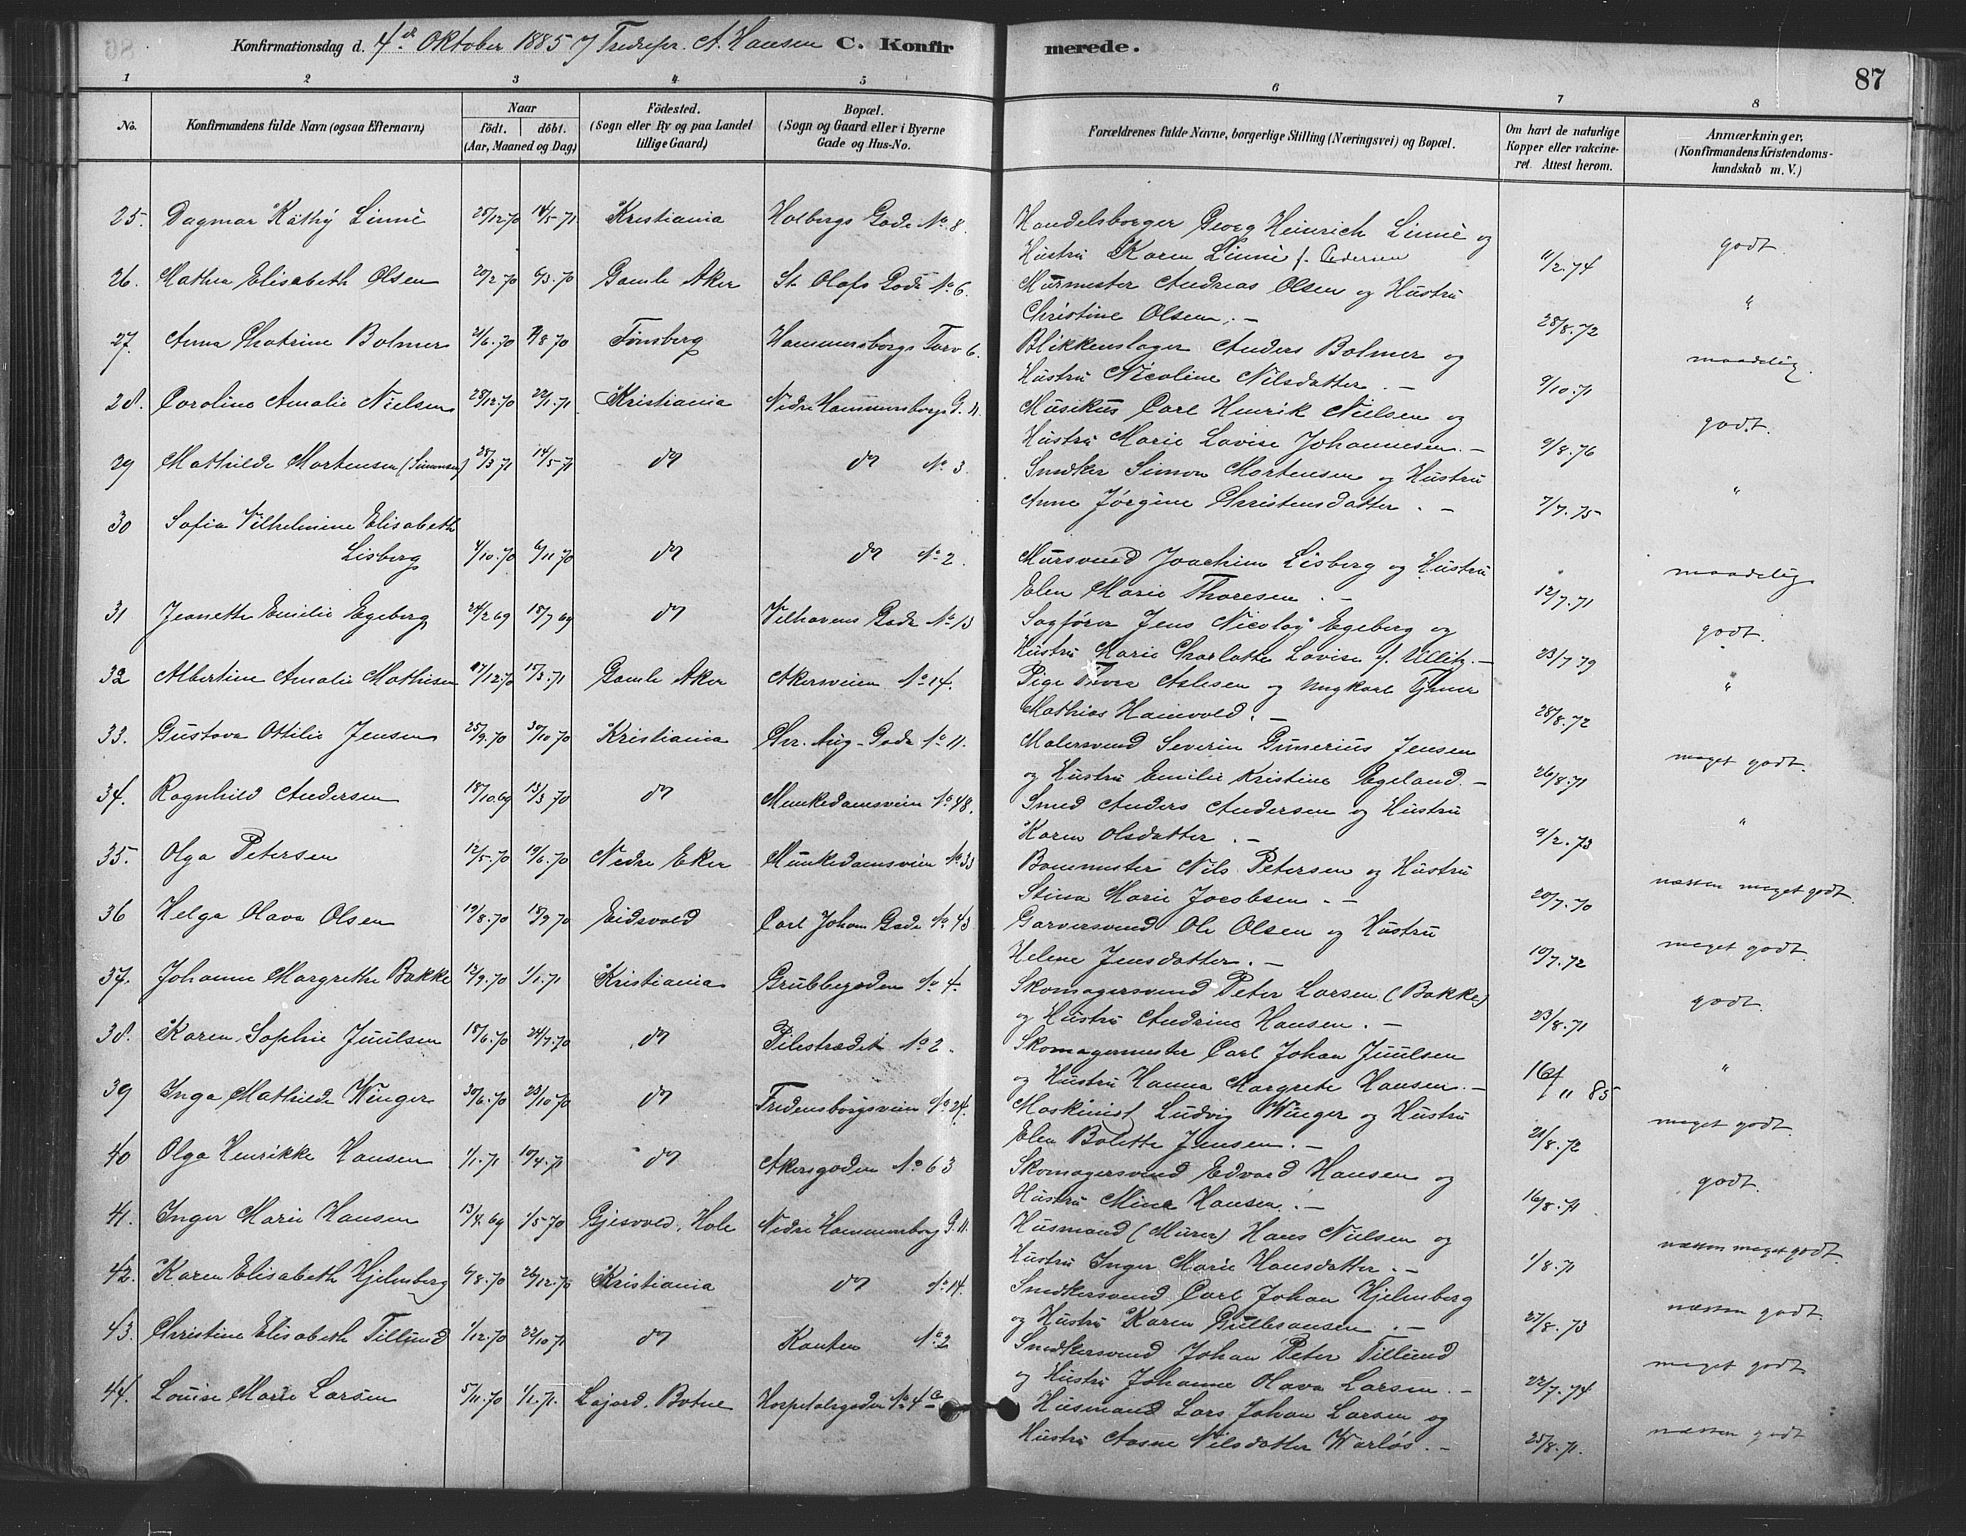 Konfirmationsdag d. 4de Oktober 1885 v/ A. Hansen C. Konfirmerede. 87
1 2 3 4 5 6 7 8
No. Konfirmandens fulde Navn (ogsaa Efternavn) Naar födt. döbt. (Aar, Maaned og Dag) Födested. (Sogn eller By og paa Landet tillige Gaard) Bopæl. (Sogn og Gaard eller i Byerne Gade og Hus-No. Forældrenes fulde Navne, borgerlige Stilling (Næringsvei) og Bopæl. Om havt de naturlige Kopper eller vakcineret. Attest herom. Anmærkninger. (Konfirmandens Kristendomskundskab m. V.)
25. Dagmar Käthÿ Linnè 25/12.70 14/5.71 Kristiania Holbergs Gade No 8. Handelsborger Georg Heinrich Linnè og
Hustru Karen Linnè f. Pedersen 11/2.74 godt.
26. Mathea Elisabeth Olsen 20/2.70 6/3.70 Gamle Aker St. Olafs Gade No 6. Murmester Andreas Olsen og Hustru
Christine Olsen. – 28/8.72 "
27. Anna Chatrine Bolmer 21/6.70 Tønsberg Hammersborgs Torv 6. Blikkenslager Anders Bolmer og
Hustru Nicoline Nilsdatter. – 9/10.71 maadelig.
28. Caroline Amalie Nielsen 28/12.70 22/1.71 Kristiania Nedre Hammersborgs G. 11. Musikus Carl Henrik Nielsen og
Hustru Marie Lovise Johannesen. – 9/8.76 godt.
29 Mathilde Mortensen (Simonsen) 28/3 71 14/5.71 do do No 3. Snedker Simon Mortensen og Hustru
Anne Jørgine Christensdatter. – 7/7.75 "
30 Sofia Vilhelmine Elisabeth
Lisberg 4/10.70 6/11 70 do do No 2. Mursvend Joachim Lisberg og Hustru
Elen Marie Thoresen. – 12/7.71 maadelig
31 Jeanette Emilie Egeberg 24/2 69 18/7 69 do Velhavens Gade No 13 Sagfører Jens Nicolay Egeberg og
Hustru Marie Charlotte Lovise f. Ullitz. – 23/7.79 godt.
32 Albertine Amalie Mathisen 17/12.70 15/3.71 Gamle Aker Akersveien No 14. Pige Thora Aslesen og Ungkarl
Mathias Hainvold. – 28/8.72 "
33. Gustava Ottilie Jensen 25/9.70 30/10 70 Kristiania Chr. Aug. Gade No 11. Malersvend Severin Gunerius Jensen
og Hustru Emilie Kristine Egeland. – 26/8.71 meget godt.
34. Ragnhild Andersen 18/10.69 13/3 70 do Munkedamsveien No 48. Smed Anders Andersen og Hustru
Karen Olsdatter. – 9/2.73 "
35. Olga Petersen 12/5.70 19/6.70 Nedre Eker Munkedamsveien No 33 Bommester Nils Petersen og Hustru
Stina Marie Jacobsen. – 20/7.70 næsten meget godt.
36 Helga Olava Olsen 19/8.70 18/9 70 Eidsvold Carl Johans Gade No 43 Garversvend Ole Olsen og Hustru
Helene Jensdatter. – 10/7.72 meget godt.
37. Johanne Margrethe Bakke 12/9.70 1/1.71 Kristiania Grubbegaden No 4. Skomagersvend Peter Larsen (Bakke)
og Hustru Andrine Hansen. – 23/8.71 godt.
38. Karen Sophie Juulsen 18/6.70 24/7.70 do Pilestrædet No 2. Skomagermester Carl Johan Juulsen
og Hustru Hanna Margrete Hansen. – 16/11 85 "
39 Inga Mathilde Winger 30/6.70 23/10 70 do Fredensborgsveien No 24. Maskinist Ludvig Winger og Hustru
Elen Bolette Jensen. – 21/8.72 meget godt.
40 Olga Henrikke Hansen 1/1.71 10/4.71 do Akersgaden No 63 Skomagersvend Edvard Hansen og
Hustru Mina Hansen. – 16/8.71 godt.
41. Inger Marie Hansen 13/4 69 1/5 70 Gjesvold, Hole Nedre Hammersborg G. 11. Husmand (Murer) Hans Nielsen og
Hustru Inger Marie Hansdatter. – 1/8.71 næsten meget godt.
42. Karen Elisabeth Hjelmberg 6/8.70 26/12.70 Kristiania do No 14. Snedkersvend Carl Johan Hjelmberg
og Hustru Karen Gulbransen. – 27/8.73 næsten godt.
43. Christine Elisabeth Tillund 1/12.70 22/10 71 do Kanten No 2 Snedkersvend Johan Peter Tillund
og Hustru Johanne Olava Larsen. – 22/7.74 meget godt
44. Louise Marie Larsen 5/11.70 1/1.71. Lajord, Botne Hospitalsgaden No 4 Husmand Lars Johan Larsen og
Hustru Aasne Nilsdatter Warløs. – 25/8.71. næsten godt